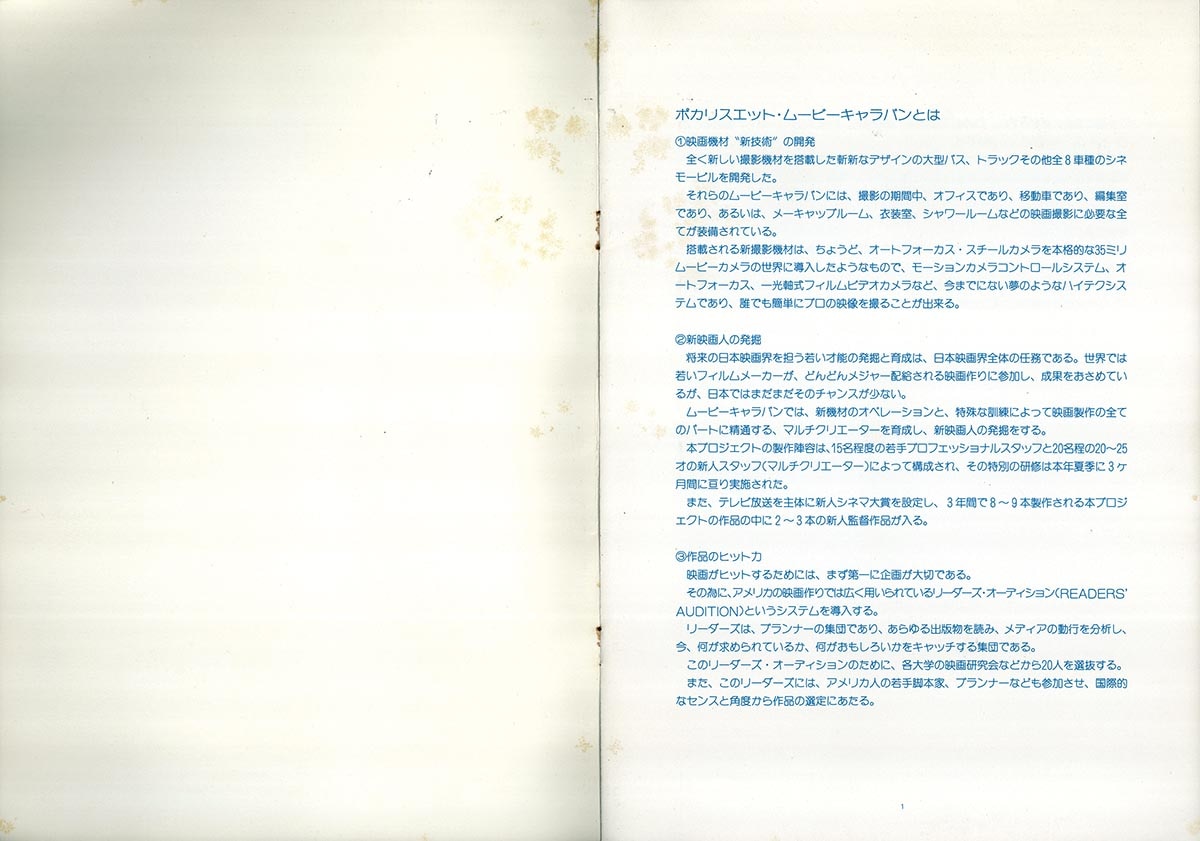 ポカリスエット・ムービーキャラバンとは
①映画機材〝新技術〟の開発
全く新しい撮影機材を搭載した斬新なデザインの大型バス、トラックその他全8車種のシネ
モービルを開発した。
それらのムービーキャラバンには、撮影の期間中、オフィスであり、移動車であり、編集室
であり、あるいは、メーキャップルーム、衣装室、シャワールームなどの映画撮影に必要な全
てが装備されている。
搭載される新撮影機材は、ちょうど、オートフォーカス・スチールカメラを本格的な35ミリ
ムービーカメラの世界に導入したようなもので、モーションカメラコントロールシステム、オ
ートフォーカス、一光軸式フィルムビデオカメラなど、今までにない夢のようなハイテクシス
テムであり、誰でも簡単にプロの映像を撮ることが出来る。
②新映画人の発掘
将来の日本映画界を担う若い才能の発掘と育成は、日本映画界全体の任務である。世界では
若いフィルムメーカーが、どんどんメジャー配給される映画作りに参加し、成果をおさめてい
るが、日本ではまだまだそのチャンスが少ない。
ムービーキャラバンでは、新機材のオペレーションと、特殊な訓練によって映画製作の全て
のパートに精通する、マルチクリエーターを育成し、新映画人の発掘をする。
本プロジェクトの製作陣容は、15名程度の若手プロフェッショナルスタッフと20名程の20〜25
才の新人スタッフ(マルチクリエーター)によって構成され、その特別の研修は本年夏季に3ヶ
月間に亘り実施された。
また、テレビ放送を主体に新人シネマ大賞を設定し、3年間で8〜9本製作される本プロジ
ェクトの作品の中に2〜3本の新人監督作品が入る。
③作品のヒット力
映画がヒットするためには、まず第一に企画が大切である。
その為に、アメリカの映画作りでは広く用いられているリーダーズ・オーディション(READERS'
AUDITION)というシステムを導入する。
リーダーズは、プランナーの集団であり、あらゆる出版物を読み、メディアの動行を分析し、
今、何が求められているか、何がおもしろいかをキャッチする集団である。
このリーダーズ・オーディションのために、各大学の映画研究会などから20人を選抜する。
また、このリーダーズには、アメリカ人の若手脚本家、プランナーなども参加させ、国際的
なセンスと角度から作品の選定にあたる。
1